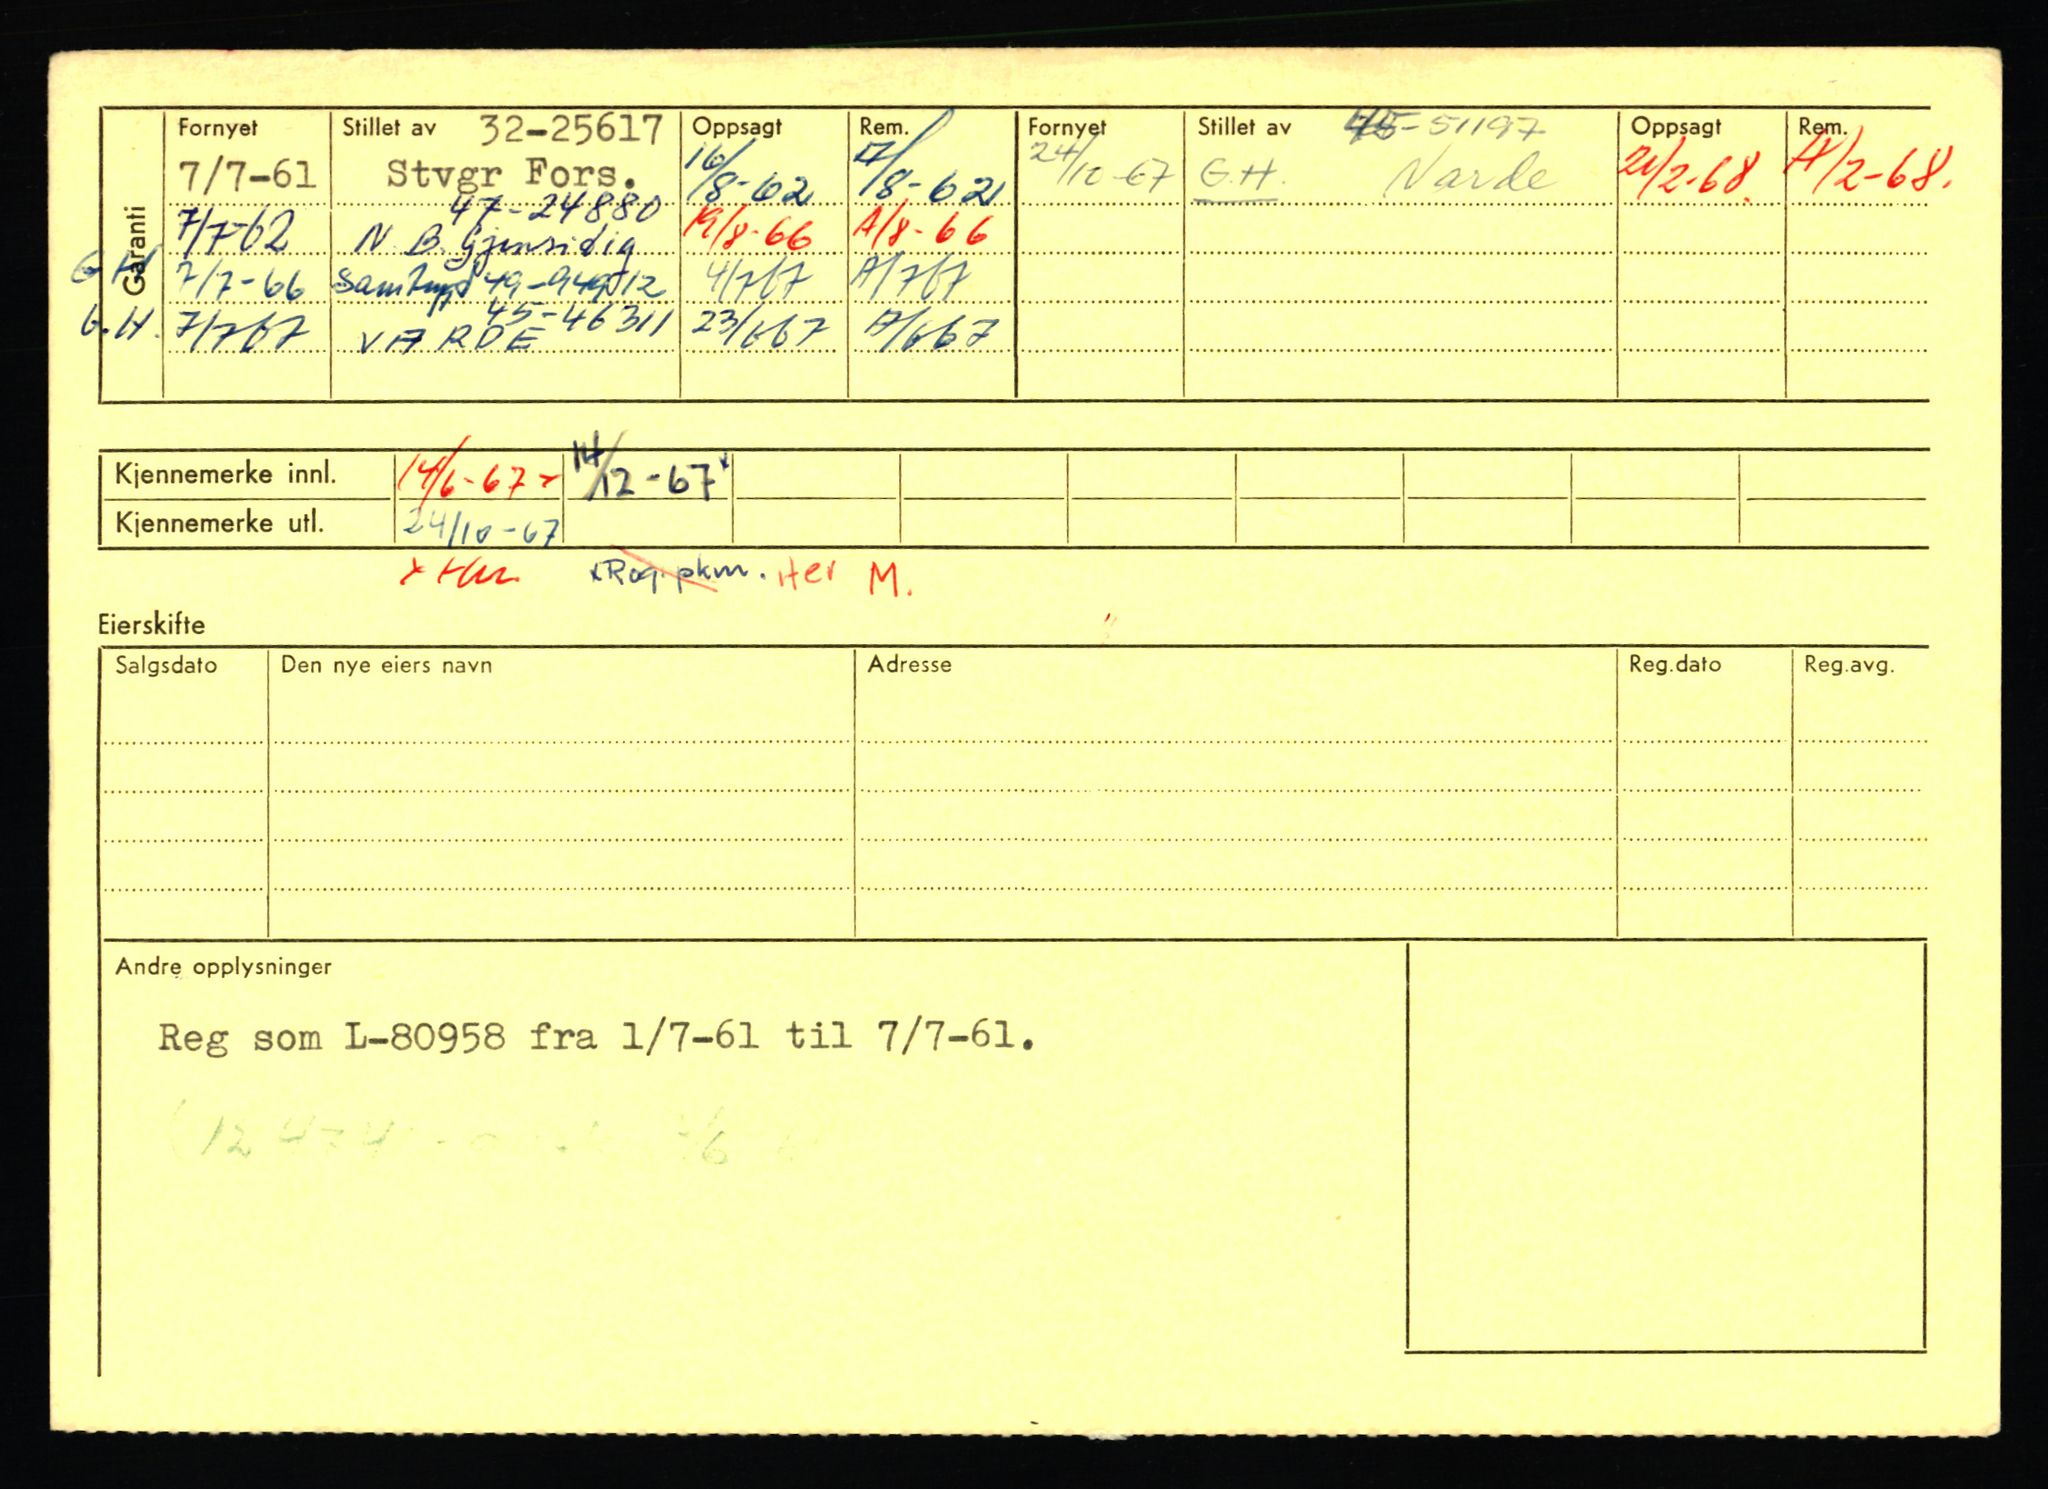 Garanti
Fornyet Stillet av 32-25617 Oppsagt Rem. Fornyet Stillet av 45-51197 Oppsagt Rem.
7/7-61 Stvgr Fors. 16/8-62 17/8-62 24/10-67 G.H. Varde 21/2-68. A/2-68.
47-24880
7/7-62 N.B. Gjensidig 19/8-66 A/8-66
G.H. 7/7-66 49-94912 4/7 67 A/7 67
45-46311
G.H. 7/7 67 VARDE 23/6 67 A/6 67
Kjennemerke innl. 14/6-67 x 14/12-67 x
Kjennemerke utl. 24/10-67
x x Rog. pkm. Her M.
Eierskifte
Salgsdato Den nye eiers navn Adresse Reg.dato Reg.avg.
Andre opplysninger
Reg som L-80958 fra 1/7-61 til 7/7-61.